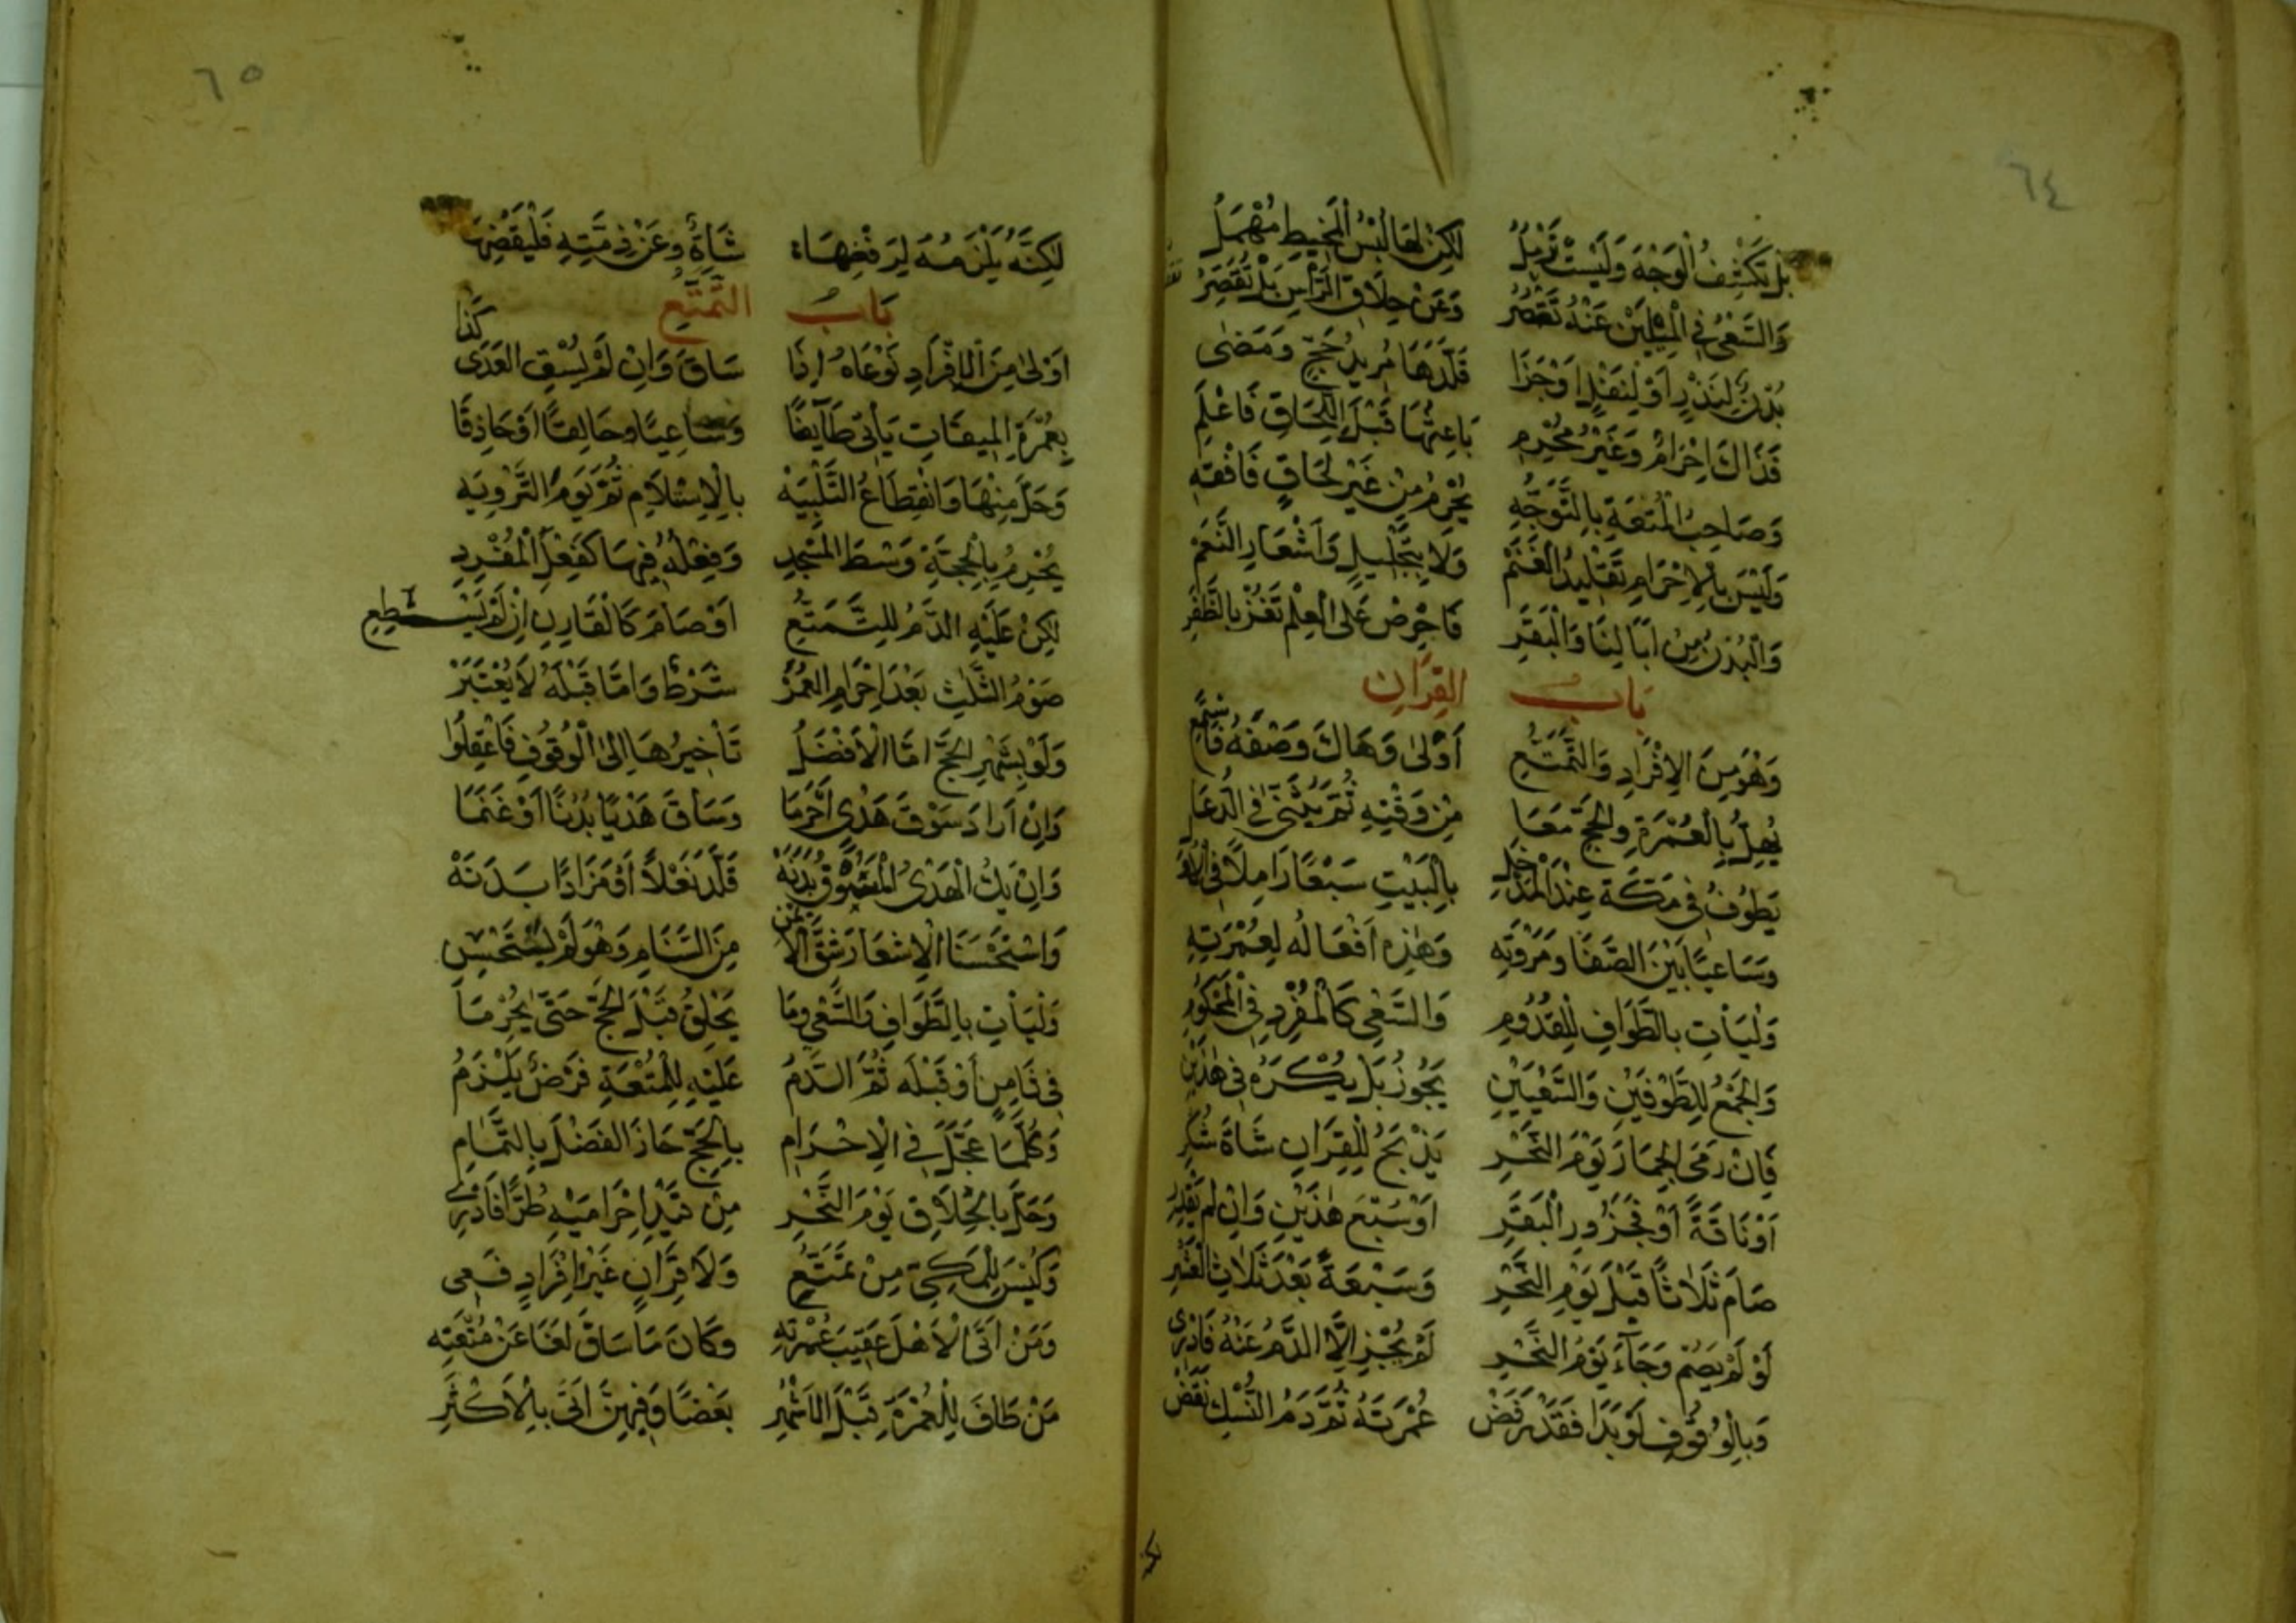 ٦٤
بَلْ تَكْشِفُ الْوَجْهَ وَلَيْسَتْ تَرْمُلُ لٰكِنْ لَهَا لُبْسُ الْمَخِيطِ مُهْمَلُ
وَالسَّعْيُ فِي الْمِيلَيْنِ عَنْهُ تَقْصُرُ وَعَنْ حِلَاقِ الرَّأْسِ بَلْ تُقَصِّرُ
بُدْنٌ لِنَذْرٍ اَوْ لِنَفْلٍ اَوْ جَزَا قَلَّدَهَا مُرِيدُ حَجٍّ وَمَضٰى
فَذَاكَ اِحْرَامٌ وَغَيْرُ مُحْرِمِ بَاعِثُهَا قَبْلَ اللِّحَاقِ فَاعْلَمِ
وَصَاحِبُ الْمُتْعَةِ بِالتَّوَجُّهِ يُحْرِمُ مِنْ غَيْرِ لِحَاقٍ فَافْقَهِ
وَلَيْسَ بِالْاِحْرَامِ تَقْلِيدُ الْغَنَمْ وَلَا بِتَجْلِيلٍ وَاِشْعَارِ النَّعَمْ
وَالْبُدْنُ مِنْ اٰبَالِنَا وَالْبَقَرِ فَاحْرِصْ عَلَى الْعِلْمِ تَفُزْ بِالظَّفَرِ
بَابُ القِرَانِ
وَهْوَ مِنَ الْاِفْرَادِ وَالتَّمَتُّعِ اَوْلٰى وَهَاكَ وَصْفَهُ فَاسْتَمِعِ
يُهِلُّ بِالْعُمْرَةِ وَالْحَجِّ مَعَا مِنْ وَقْتِهِ ثُمَّ يُثَنِّي فِي الدُّعَا
يَطُوفُ فِي مَكَّةَ عِنْدَ الْمَدْخَلِ بِالْبَيْتِ سَبْعًا رَامِلًا فِي الْاُوَلِ
وَسَاعِيًا بَيْنَ الصَّفَا وَمَرْوَتِهِ وَهٰذِهِ اَفْعَالُهُ لِعُمْرَتِهِ
وَلْيَأْتِ بِالطَّوَافِ لِلْقُدُومِ وَالسَّعْيِ كَالْمُفْرِدِ فِي الْمَحْكُومِ
وَالْجَمْعُ لِلطَّوْفَيْنِ وَالسَّعْيَيْنِ يَجُوزُ بَلْ يُكْرَهُ فِي هٰذَيْنِ
فَاِنْ رَمَى الْجِمَارَ يَوْمَ النَّحْرِ يَذْبَحُ لِلْقِرَانِ شَاةَ شُكْرِ
اَوْ نَاقَةً اَوْ فَجَزُورَ الْبَقَرِ اَوْ سُبْعَ هٰذَيْنِ وَاِنْ لَمْ يَقْدِرِ
صَامَ ثَلَاثًا قَبْلَ يَوْمِ النَّحْرِ وَسَبْعَةً بَعْدَ ثَلَاثِ الْعَشْرِ
لَوْ لَمْ يَصُمْ وَجَاءَ يَوْمُ النَّحْرِ لَمْ يُجْزِ اِلَّا الدَّمُ عَنْهُ فَادْرِ
وَبِالْوُقُوفِ لَوْ بَدَا فَقَدْ رَفَضْ عُمْرَتَهُ ثُمَّ دَمُ النُّسْكِ نَقَضْ
٦٥
لٰكِنَّهُ يَلْزَمُهُ لِرَفْضِهَا شَاةٌ وَعَنْ ذِمَّتِهِ فَلْيَقْضِهَا
بَابُ التَّمَتُّعِ
اَوْلٰى مِنَ الْاِفْرَادِ نَوْعَاهُ اِذَا سَاقَ وَاِنْ لَمْ يَسُقِ الْهَدْيَ كَذَا
بِعُمْرَةِ الْمِيقَاتِ يَأْتِي طَائِفًا وَسَاعِيًا وَحَالِقًا اَوْ حَاذِقًا
وَحَلَّ مِنْهَا وَانْقِطَاعُ التَّلْبِيَهْ بِالْاِسْتِلَامِ ثُمَّ يَوْمَ التَّرْوِيَهْ
يُحْرِمُ بِالْحِجَّةِ وَسْطَ الْمَسْجِدِ وَفِعْلُهُ فِيهَا كَفِعْلِ الْمُفْرِدِ
لٰكِنْ عَلَيْهِ الدَّمُ لِلتَّمَتُّعِ اَوْ صَامَ كَالْقَارِنِ اِنْ لَمْ يَسْتَطِعِ
صَوْمُ الثَّلٰثِ بَعْدَ اِحْرَامِ الْعُمَرْ شَرْطٌ وَاَمَّا قَبْلَهُ لَا يُعْتَبَرْ
وَلَوْ بِشَهْرِ الْحَجِّ اَمَّا الْاَفْضَلُ تَأْخِيرُهَا اِلَى الْوُقُوفِ فَاعْقِلُوا
وَاِنْ اَرَادَ سَوْقَ هَدْيٍ اَحْرَمَا وَسَاقَ هَدْيًا بُدُنًا اَوْ غَنَمَا
وَاِنْ يَكُ الْهَدْيُ الْمَسُوقُ بُدَنَهْ قَلَّدَ نَعْلًا اَوْ مَزَادًا بَدَنَهْ
وَاسْتَحْسَنَا الْاِشْعَارَ شَقَّ الْاَيْمَنِ مِنَ السَّنَامِ وَهْوَ لَمْ يَسْتَحْسِنِ
وَلْيَأْتِ بِالطَّوَافِ وَالسَّعْيِ وَمَا يَحْلِقُ قَبْلَ الْحَجِّ حَتّٰى يُحْرِمَا
فِي ثَامِنٍ اَوْ قَبْلَهُ ثُمَّ الدَّمُ عَلَيْهِ لِلْمُتْعَةِ فَرْضٌ يَلْزَمُ
وَكُلَّمَا عَجَّلَ فِي الْاِحْرَامِ بِالْحَجِّ حَازَ الْفَضْلَ بِالتَّمَامِ
وَحَلَّ بِالْحِلَاقِ يَوْمَ النَّحْرِ مِنْ قَيْدِ اِحْرَامَيْهِ طُرًّا فَادْرِ
وَلَيْسَ لِلْمَكِّيِّ مِنْ تَمَتُّعِ وَلَا قِرَانٍ غَيْرُ اِفْرَادٍ فَعِي
وَمَنْ اَتَى الْاَهْلَ عَقِيبَ عُمْرَتِهِ وَكَانَ مَا سَاقَ لَغَا عَنْ مُتْعَتِهِ
مَنْ طَافَ لِلْعُمْرَةِ قَبْلَ الْاَشْهُرِ بَعْضًا وَفِيهِنَّ اَتٰى بِالْاَكْثَرِ